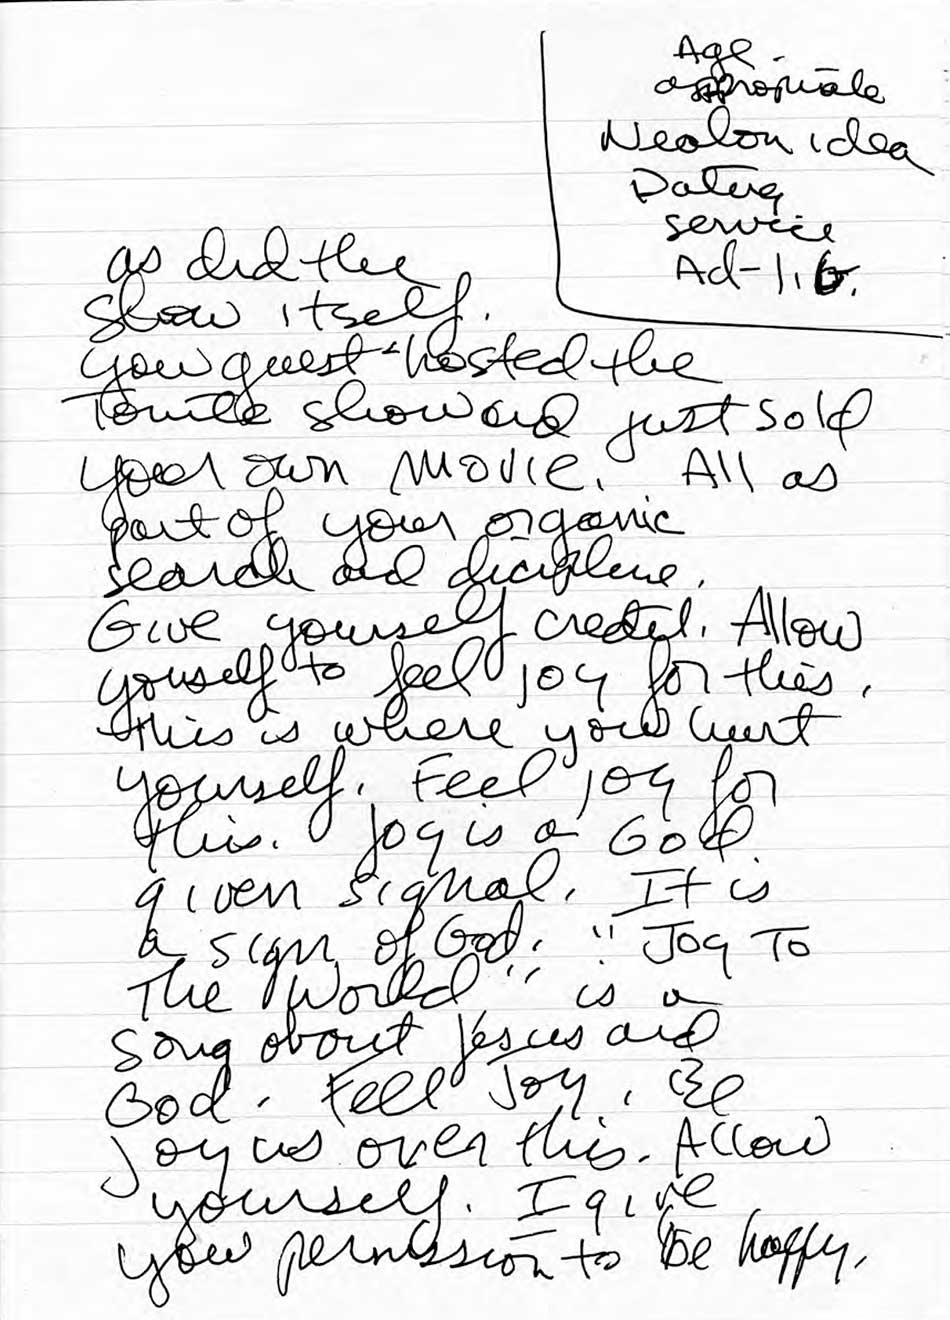 Age
appropriate
Nealon idea
Dating
service
Ad-lib.
as did the
show itself.
You guest-hosted the
Tonite show and just sold
your own movie. All as
part of your organic
search and discipline.
Give yourself credit. Allow
yourself to feel joy for this.
This is where you hurt
yourself. Feel joy for
this. Joy is a God
given signal. It is
a sign of God. "Joy To
The World" is a
song about Jesus and
God. Feel Joy. Be
joyus over this. Allow
yourself. I give
you permission to be happy.